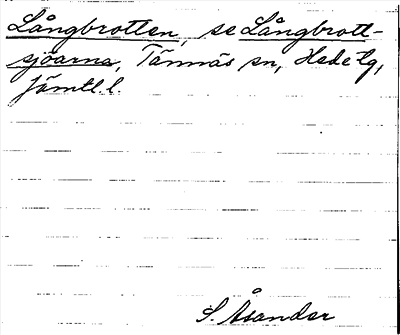 Långbrotten, se Långbrott-
sjöarna, Tännäs sn, Hede tg,
Jämtl. l.
S. Åsander